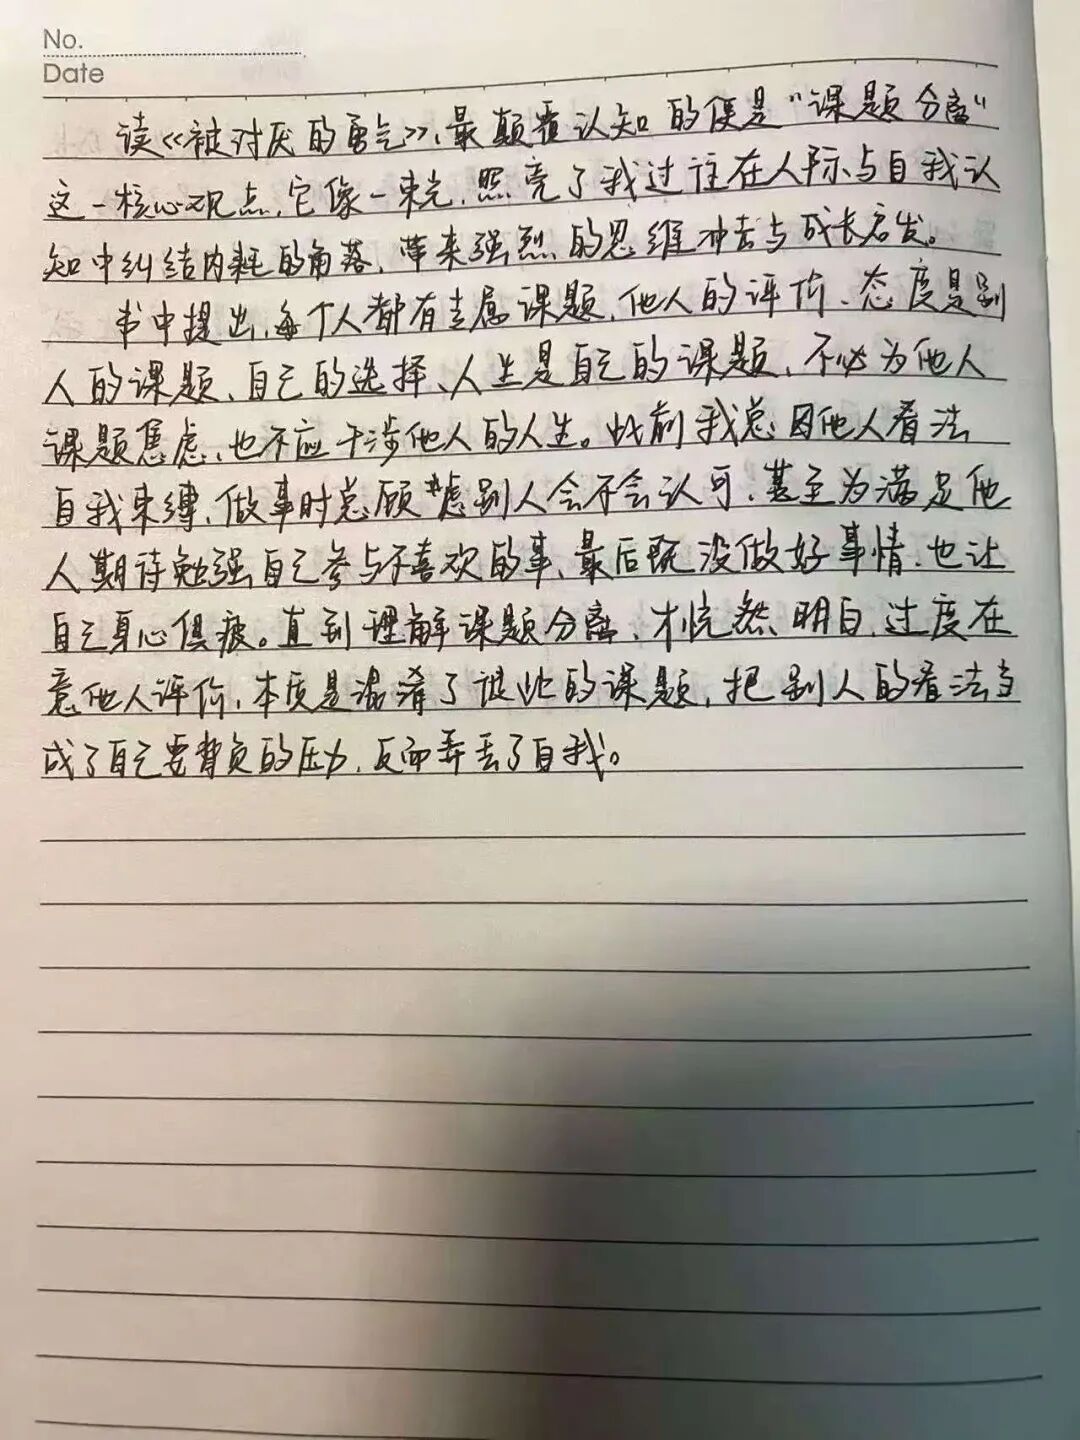 No.
Date
读《被讨厌的勇气》,最颠覆认知的便是"课题分离"
这一核心观点,它像一束光,照亮了我过往在人际与自我认
知中纠结内耗的角落,带来强烈的思维冲击与成长启发。
书中提出,每个人都有专属课题,他人的评价、态度是别
人的课题,自己的选择、人生是自己的课题,不必为他人
课题焦虑,也不应干涉他人的人生。以前我总因他人看法
自我束缚,做事时总顾虑别人会不会认可,甚至为满足他
人期待勉强自己参与不喜欢的事,最后既没做好事情,也让
自己身心俱疲。直到理解课题分离,才恍然明白,过度在
意他人评价,本质是混淆了彼此的课题,把别人的看法当
成了自己要背负的压力,反而弄丢了自我。